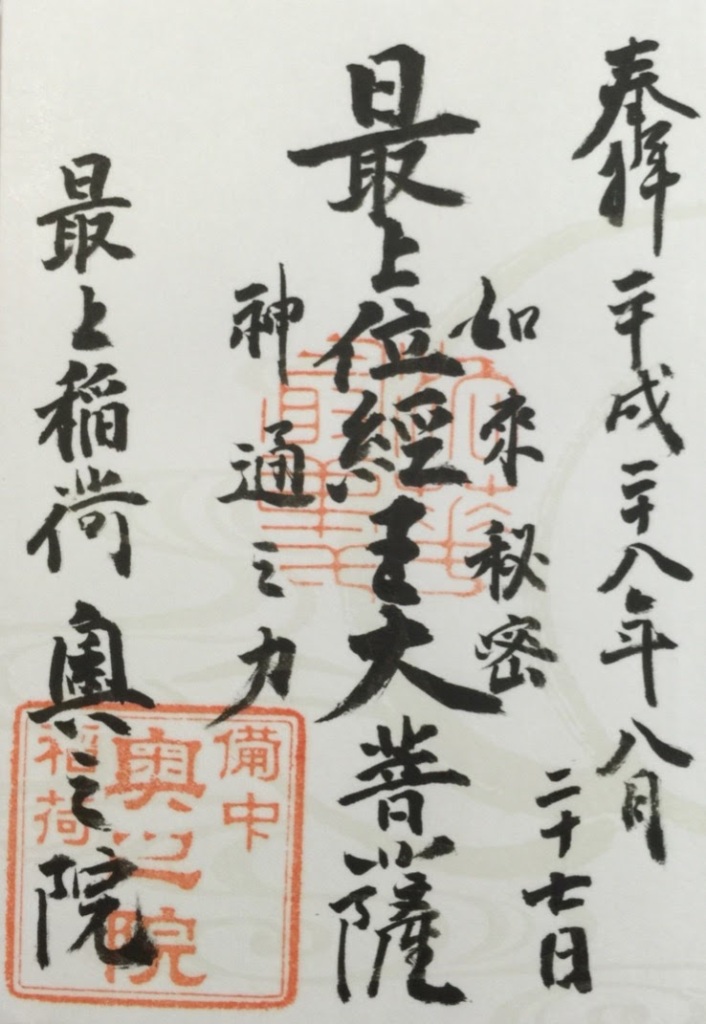 奉拝 平成二十八年八月
二十七日
如来秘密
最上位經王大菩薩
神通之力
最上稲荷 奥之院
備中
奥之院
稲荷